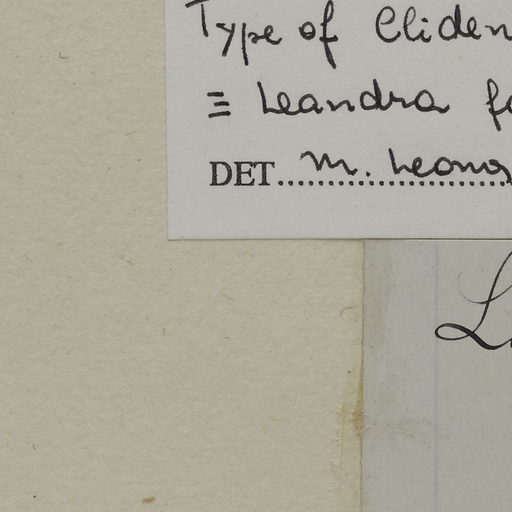 Type of Cliden
≡ Leandra fo
DET. M. Leong
L